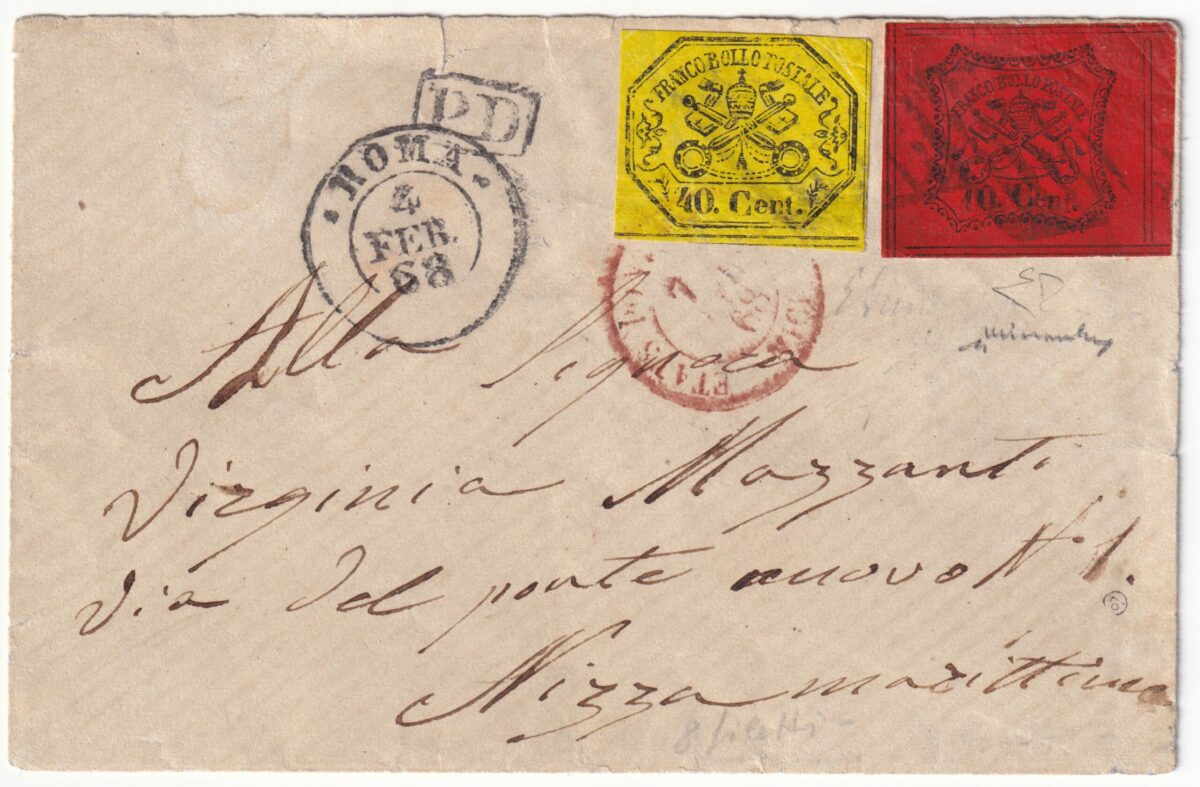 P.D
FRANCO BOLLO POSTALE
40. Cent.
FRANCO BOLLO POSTALE
10. Cent.
ROMA
4
FEB.
68
7
68
Alla Signora
Virginia Mazzanti
Via del ponte nuovo N 1.
Nizza marittima
8 filetti